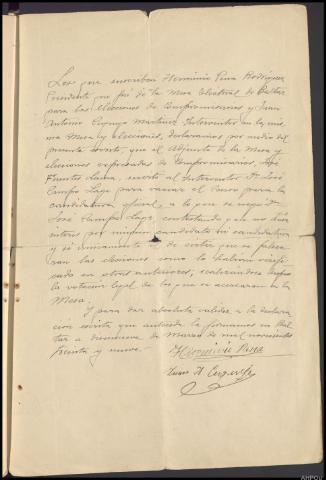 Los que suscriben Herminio Pena Rodriguez,
Presidente que fué de la Mesa Electoral de Beltar
para las elecciones de Compromisarios y Juan
Antonio Martinez, Interventor en la mis-
ma Mesa y elecciones, declaramos por medio del
presente escrito, que el Adjunto de la Mesa y
elecciones expresadas de Compromisarios, José
Fuentes invitó al Interventor D. José
Campo Lage para vaciar el Censo para la
candidatura oficial, a lo que se negó D.
José Campo Lage, contestando que no tenia
interes por ningun candidato ni candidatura
y si unicamente el de evitar que se falsea-
ran las elecciones como lo habian verifi-
cado en otras anteriores, realizandose
la votación legal de los que se acercaron a la
Mesa.
Y para dar absoluta validez a la declara-
ción escrita que antecede la firmamos en Bel-
tar a diecinueve de Marzo de mil novecientos
treinta y nueve.-
Herminio Pena
Juan A.
AHPOu